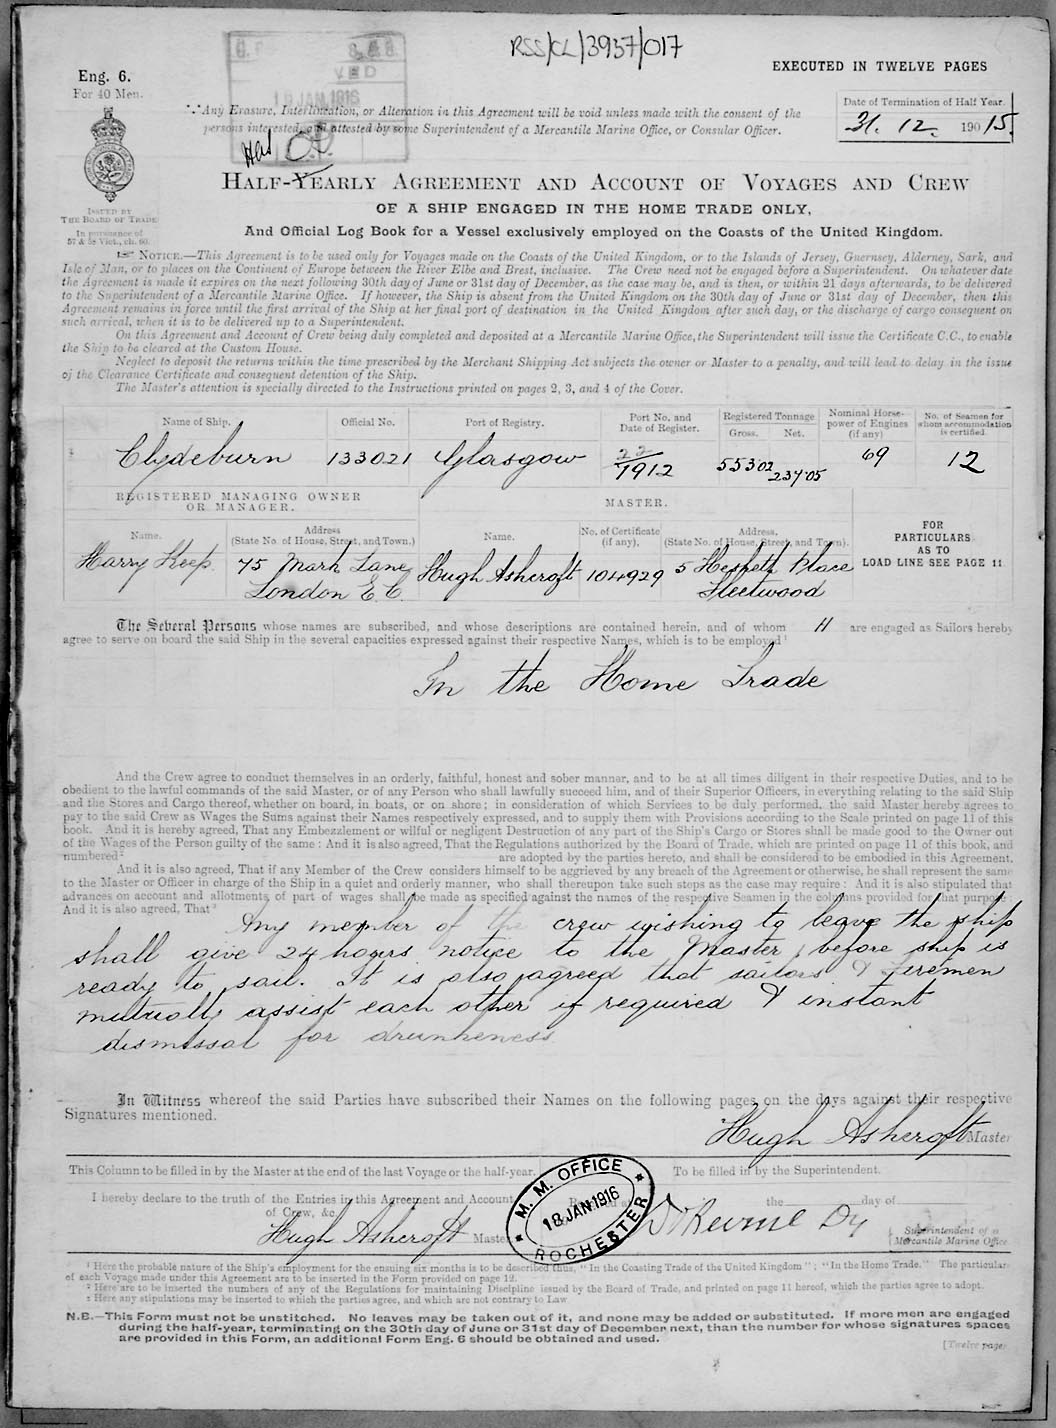 RSS/CL/3957/017
EXECUTED IN TWELVE PAGES
Eng. 6.
For 40 Men.
18 JAN 1916
Date of Termination of Half Year.
31. 12. 190 15.
∴ Any Erasure, Interlineation, or Alteration in this Agreement will be void unless made with the consent of the
persons interested, and attested by some Superintendent of a Mercantile Marine Office, or Consular Officer.
HALF-YEARLY AGREEMENT AND ACCOUNT OF VOYAGES AND CREW
OF A SHIP ENGAGED IN THE HOME TRADE ONLY,
And Official Log Book for a Vessel exclusively employed on the Coasts of the United Kingdom.
ISSUED BY
THE BOARD OF TRADE
In pursuance of
57 & 58 Vict., ch. 60.
☞ NOTICE.—This Agreement is to be used only for Voyages made on the Coasts of the United Kingdom, or to the Islands of Jersey, Guernsey, Alderney, Sark, and
Isle of Man, or to places on the Continent of Europe between the River Elbe and Brest, inclusive. The Crew need not be engaged before a Superintendent. On whatever date
the Agreement is made it expires on the next following 30th day of June or 31st day of December, as the case may be, and is then, or within 21 days afterwards, to be delivered
to the Superintendent of a Mercantile Marine Office. If however, the Ship is absent from the United Kingdom on the 30th day of June or 31st day of December, then this
Agreement remains in force until the first arrival of the Ship at her final port of destination in the United Kingdom after such day, or the discharge of cargo consequent on
such arrival, when it is to be delivered up to a Superintendent.
On this Agreement and Account of Crew being duly completed and deposited at a Mercantile Marine Office, the Superintendent will issue the Certificate C.C., to enable
the Ship to be cleared at the Custom House.
Neglect to deposit the returns within the time prescribed by the Merchant Shipping Act subjects the owner or Master to a penalty, and will lead to delay in the issue
of the Clearance Certificate and consequent detention of the Ship.
The Master's attention is specially directed to the Instructions printed on pages 2, 3, and 4 of the Cover.
Name of Ship. Official No. Port of Registry. Port No. and Date of Register. Registered Tonnage Gross. Net. Nominal Horse-power of Engines (if any) No. of Seamen for whom accommodation is certified.
Clydeburn 133021 Glasgow 22/1912 553 02 234.05 69 12
REGISTERED MANAGING OWNER OR MANAGER. MASTER.
Name. Address (State No. of House, Street, and Town.) Name. No. of Certificate (if any). Address. (State No. of House, Street, and Town).
FOR
PARTICULARS
AS TO
LOAD LINE SEE PAGE 11.
Harry Keep. 75 Mark Lane Hugh Ashcroft 104929 5 Hesketh Place
London E.C. Fleetwood
The Several Persons whose names are subscribed, and whose descriptions are contained herein, and of whom 11 are engaged as Sailors hereby
agree to serve on board the said Ship in the several capacities expressed against their respective Names, which is to be employed¹
In the Home Trade
And the Crew agree to conduct themselves in an orderly, faithful, honest and sober manner, and to be at all times diligent in their respective Duties, and to be
obedient to the lawful commands of the said Master, or of any Person who shall lawfully succeed him, and of their Superior Officers, in everything relating to the said Ship
and the Stores and Cargo thereof, whether on board, in boats, or on shore; in consideration of which Services to be duly performed, the said Master hereby agrees to
pay to the said Crew as Wages the Sums against their Names respectively expressed, and to supply them with Provisions according to the Scale printed on page 11 of this
book. And it is hereby agreed, That any Embezzlement or wilful or negligent Destruction of any part of the Ship's Cargo or Stores shall be made good to the Owner out
of the Wages of the Person guilty of the same: And it is also agreed, That the Regulations authorized by the Board of Trade, which are printed on page 11 of this book, and
numbered² are adopted by the parties hereto, and shall be considered to be embodied in this Agreement.
And it is also agreed, That if any Member of the Crew considers himself to be aggrieved by any breach of the Agreement or otherwise, he shall represent the same
to the Master or Officer in charge of the Ship in a quiet and orderly manner, who shall thereupon take such steps as the case may require: And it is also stipulated that
advances on account and allotments of part of wages shall be made as specified against the names of the respective Seamen in the columns provided for that purpose
And it is also agreed, That³
Any member of the crew wishing to leave the ship
shall give 24 hours notice to the Master, before ship is
ready to sail. It is also agreed that sailors & firemen
mutually assist each other if required & instant
dismissal for drunkeness
In Witness whereof the said Parties have subscribed their Names on the following pages, on the days against their respective
Signatures mentioned.
Hugh Ashcroft Master
This Column to be filled in by the Master at the end of the last Voyage or the half-year. To be filled in by the Superintendent.
I hereby declare to the truth of the Entries in this Agreement and Account the day of
of Crew, &c.
Hugh Ashcroft Master
M. M. OFFICE
18 JAN 1916
ROCHESTER
Superintendent of a
Mercantile Marine Office
¹ Here the probable nature of the Ship's employment for the ensuing six months is to be described thus, "In the Coasting Trade of the United Kingdom"; "In the Home Trade." The particulars
of each Voyage made under this Agreement are to be inserted in the Form provided on page 12.
² Here are to be inserted the numbers of any of the Regulations for maintaining Discipline issued by the Board of Trade, and printed on page 11 hereof, which the parties agree to adopt.
³ Here any stipulations may be inserted to which the parties agree, and which are not contrary to Law
N.B.—This Form must not be unstitched. No leaves may be taken out of it, and none may be added or substituted. If more men are engaged
during the half-year, terminating on the 30th day of June or 31st day of December next, than the number for whose signatures spaces
are provided in this Form, an additional Form Eng. 6 should be obtained and used.
[Twelve page